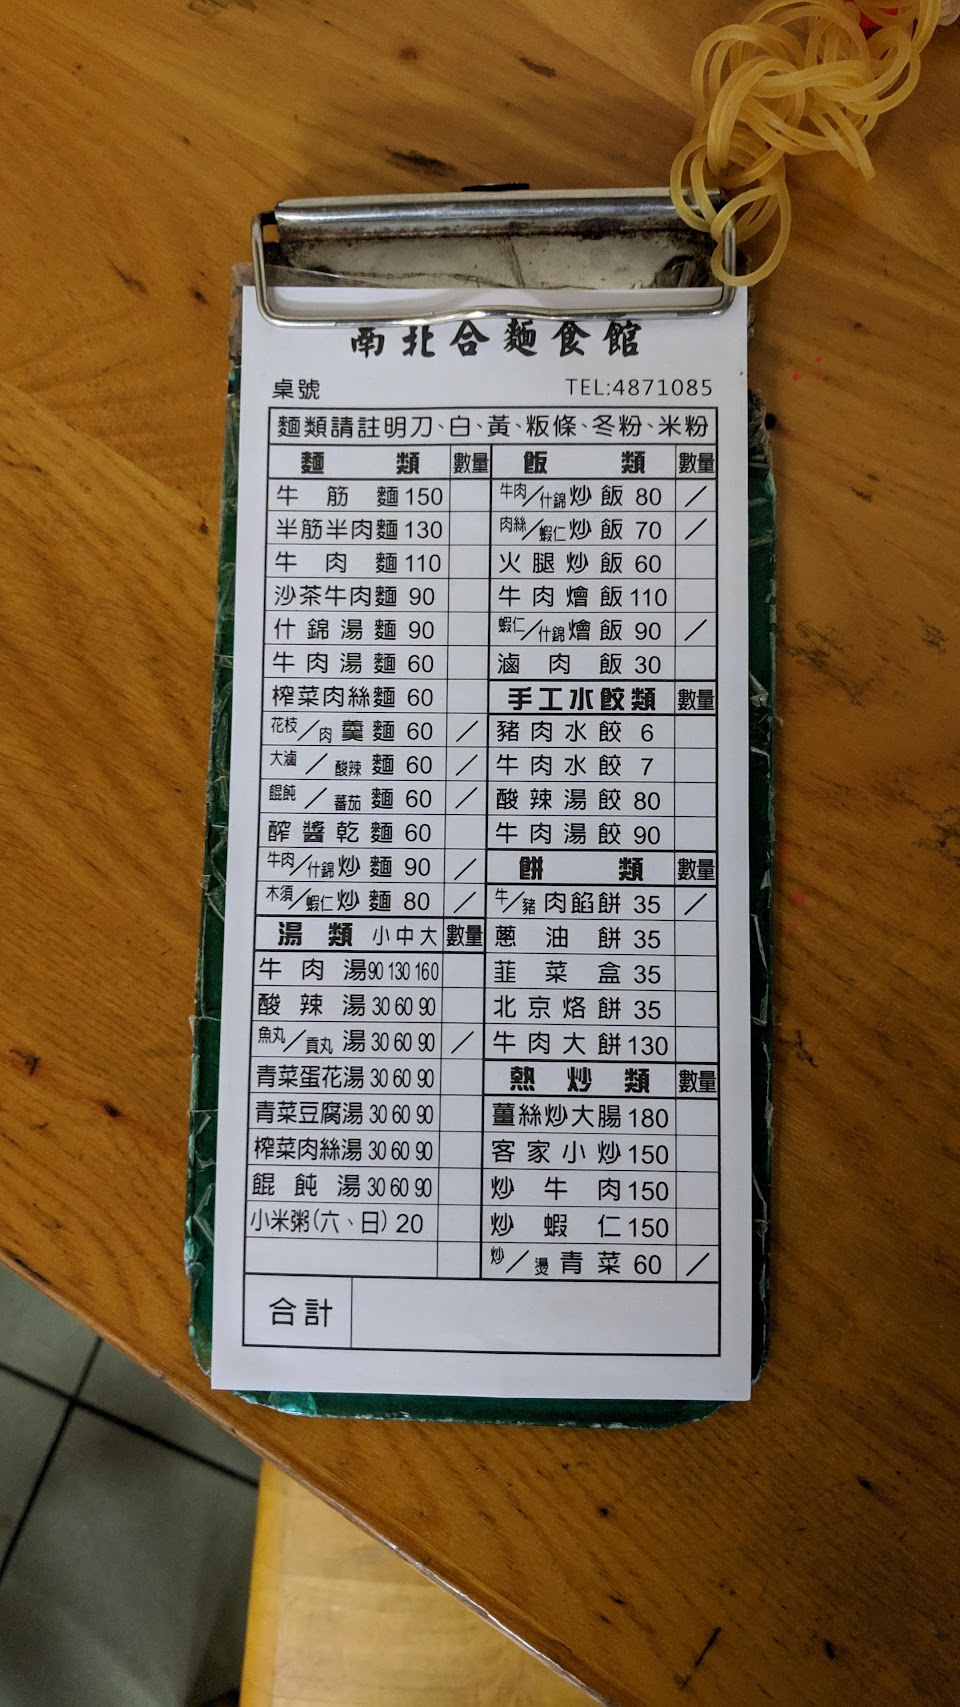 南北合麵食館
桌號 TEL:4871085
麵類請註明刀、白、黃、粄條、冬粉、米粉
麵類 數量
牛筋麵 150
半筋半肉麵 130
牛肉麵 110
沙茶牛肉麵 90
什錦湯麵 90
牛肉湯麵 60
榨菜肉絲麵 60
花枝/肉羹麵 60 /
大滷/酸辣麵 60 /
餛飩/蕃茄麵 60 /
醡醬乾麵 60
牛肉/什錦炒麵 90 /
木須/蝦仁炒麵 80 /
湯類 小中大 數量
牛肉湯 90 130 160
酸辣湯 30 60 90
魚丸/貢丸湯 30 60 90 /
青菜蛋花湯 30 60 90
青菜豆腐湯 30 60 90
榨菜肉絲湯 30 60 90
餛飩湯 30 60 90
小米粥(六、日) 20
飯類 數量
牛肉/什錦炒飯 80 /
肉絲/蝦仁炒飯 70 /
火腿炒飯 60
牛肉燴飯 110
蝦仁/什錦燴飯 90 /
滷肉飯 30
手工水餃類 數量
豬肉水餃 6
牛肉水餃 7
酸辣湯餃 80
牛肉湯餃 90
餅類 數量
牛/豬肉餡餅 35 /
蔥油餅 35
韭菜盒 35
北京烙餅 35
牛肉大餅 130
熱炒類 數量
薑絲炒大腸 180
客家小炒 150
炒牛肉 150
炒蝦仁 150
炒/燙青菜 60 /
合計